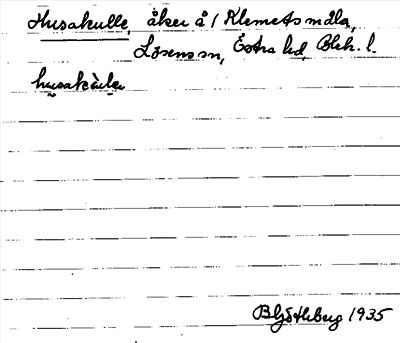 Husakulle, åker å 1 Klemetsmåla,
Lösens sn, Östra hd, Blek. l.
husakùlẹ
1935